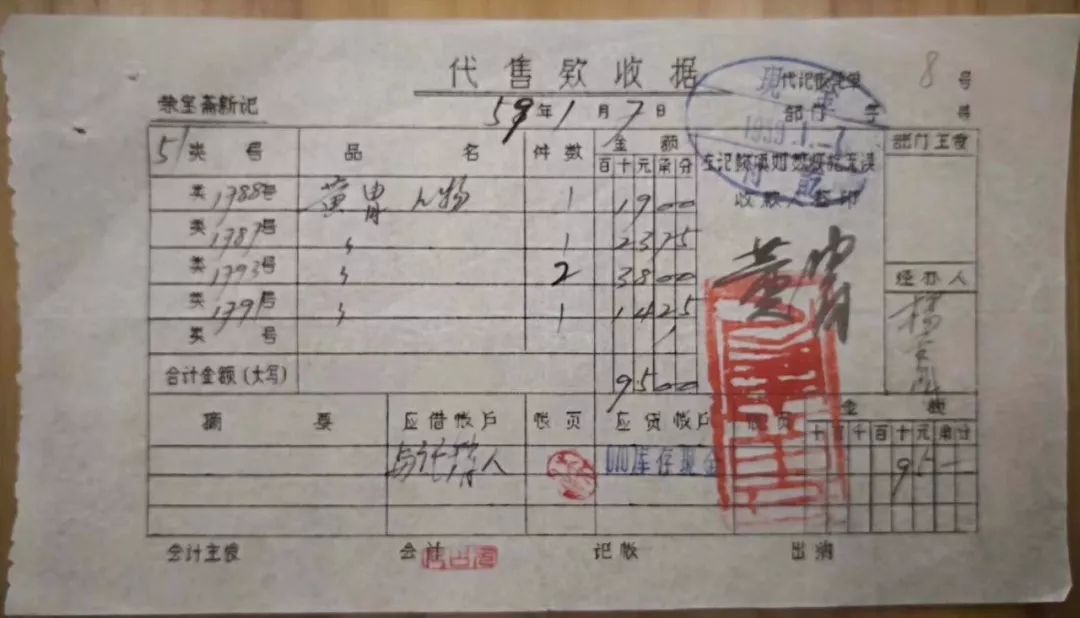 代售款收据
8 号
荣宝斋新记
59年1月7日
代记账凭单
部门 字 号
1959.1.7
51 类号 品名 件数 金额 部门主管
百十元角分
收款人签印
类1788号 黄胄 人物 1 19 00
类1787号 〃 1 23 75
黄胄
类1793号 〃 2 38 00
经办人
类1791号 〃 1 14 25
类 号
合计金额(大写) 95 00
摘要 应借帐户 帐页 应贷帐户 帐页 金额
十万千百十元角分
010库存现金 95 —
会计主管 会计 记帐 出纳